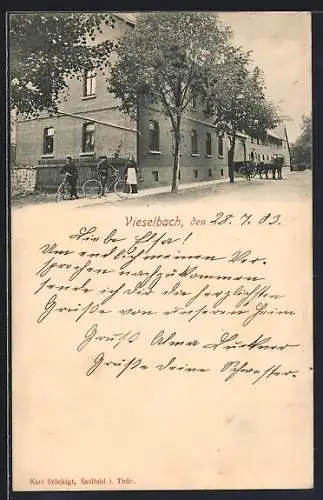 Vieselbach, den 28. 7. 03.
Liebe Elsa!
Um endlich meinen Ver-
sprechen nachzukommen
sende ich Dir die herzlichsten
Grüße von unserem Heim
Gruß Alma
Grüße deine Schwester.
Karl Stöckigt, Saalfeld i. Thür.